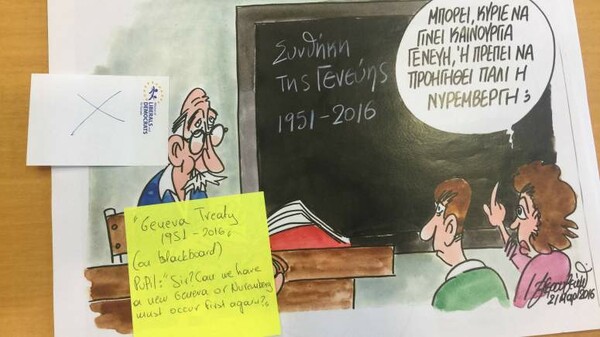 Συνθήκη
της Γενεύης
1951-2016
ΜΠΟΡΕΙ, ΚΥΡΙΕ ΝΑ
ΓΙΝΕΙ ΚΑΙΝΟΥΡΓΙΑ
ΓΕΝΕΥΗ, Ή ΠΡΕΠΕΙ ΝΑ
ΠΡΟΗΓΗΘΕΙ ΠΑΛΙ Η
ΝΥΡΕΜΒΕΡΓΗ;
LIBERALS and
DEMOCRATS
"Geneva Treaty
1951-2016"
(on blackboard)
Pupil: "Sir? Can we have
a new Geneva or Nuremberg
must occur first again?"
21 Μαρ 2016